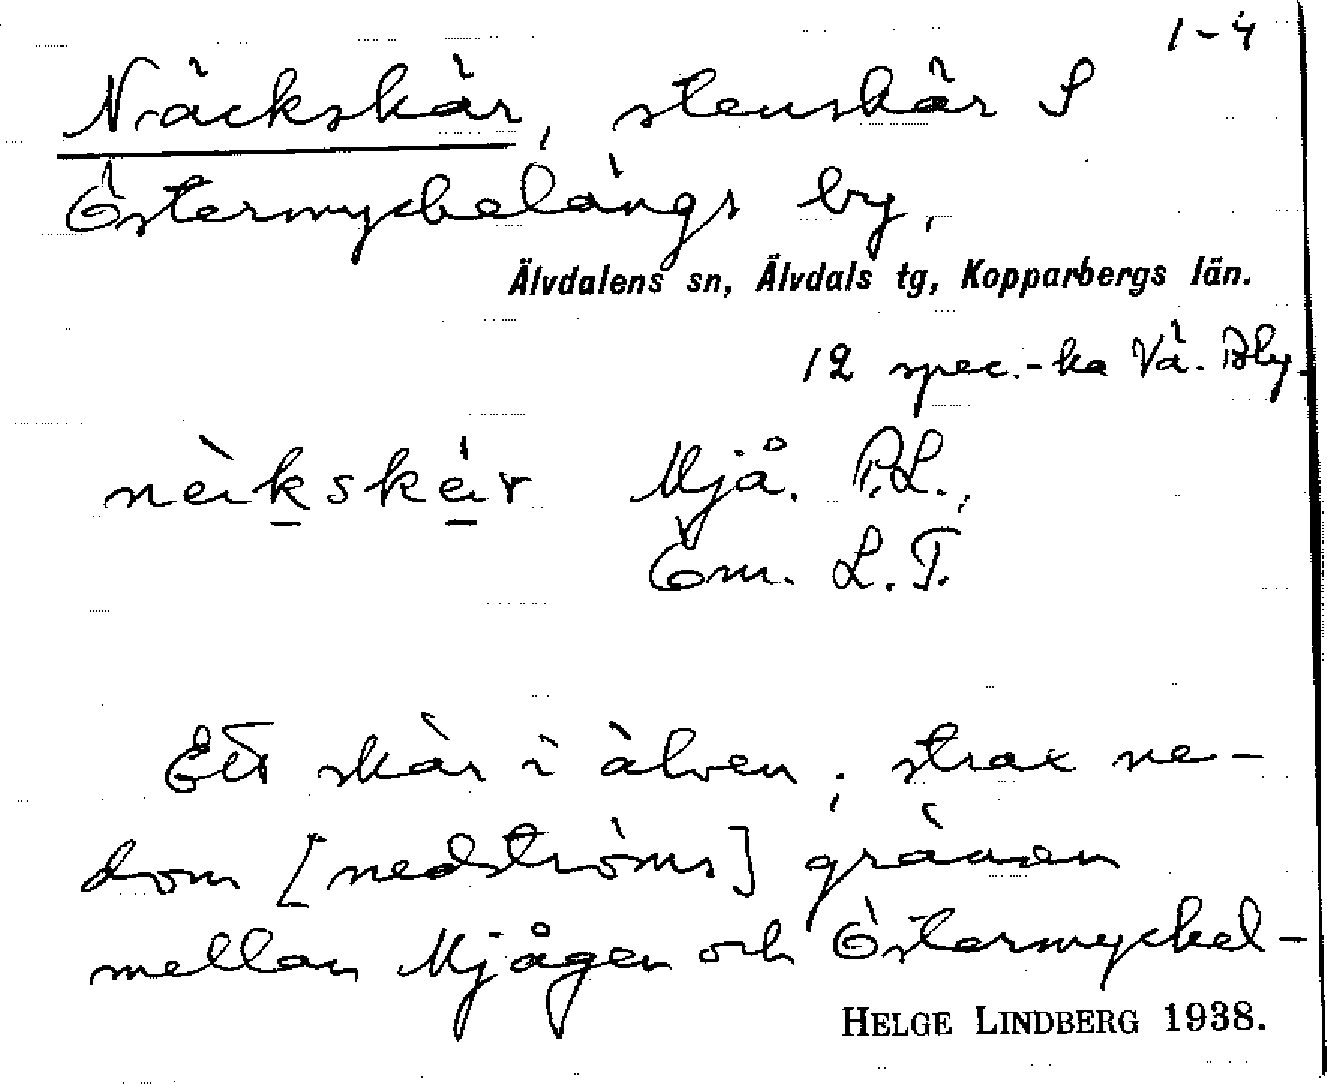 1-4
Näckskär, stenskär S
Östermyckelängs by,
Älvdalens sn, Älvdals tg, Kopparbergs län.
12 spec.-ka Vä. Bly.
nèikskéir Mjå. P.L.,
Öm. L.T.
Ett skär i älven, strax ne-
dom [nedströms] gränsen
mellan Mjågen och Östermyckel-
HELGE LINDBERG 1938.